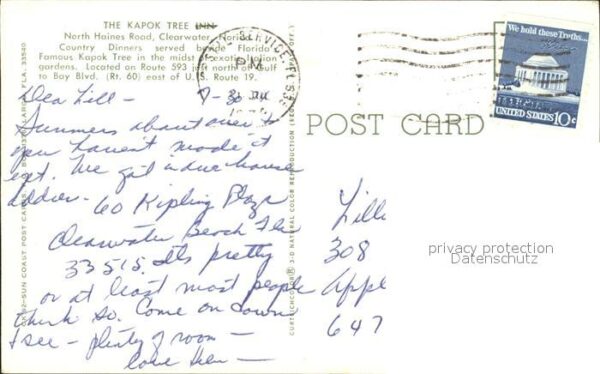 THE KAPOK TREE INN
North Haines Road, Clearwater, Florida
Country Dinners served beside Florida's
Famous Kapok Tree in the midst of exotic Italian
gardens. Located on Route 593 just north of Gulf
to Bay Blvd. (Rt. 60) east of U.S. Route 19.
SERVICE
PM
We hold these Truths...
UNITED STATES 10c
POST CARD
Dea Lill -
Summers about over &
you haven't made it
yet. We got in our house
60 Kipling Plaza
Clearwater Beach Fla
33515. Its pretty
or at least most people
think so. Come on down
& see - plenty of room -
Love
Lilli
308
Appl
647
privacy protection
Datenschutz
SUN COAST POST CARDS
3-D NATURAL COLOR REPRODUCTION